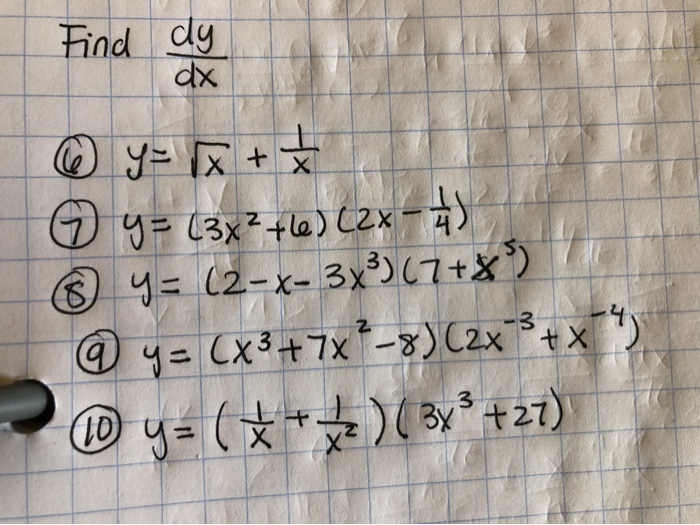 Find dy/dx
⑥ y = √x + 1/x
⑦ y = (3x² + 6)(2x - 1/4)
⑧ y = (2 - x - 3x³)(7 + x⁵)
⑨ y = (x³ + 7x² - 8)(2x⁻³ + x⁻⁴)
⑩ y = (1/x + 1/x²)(3x³ + 27)